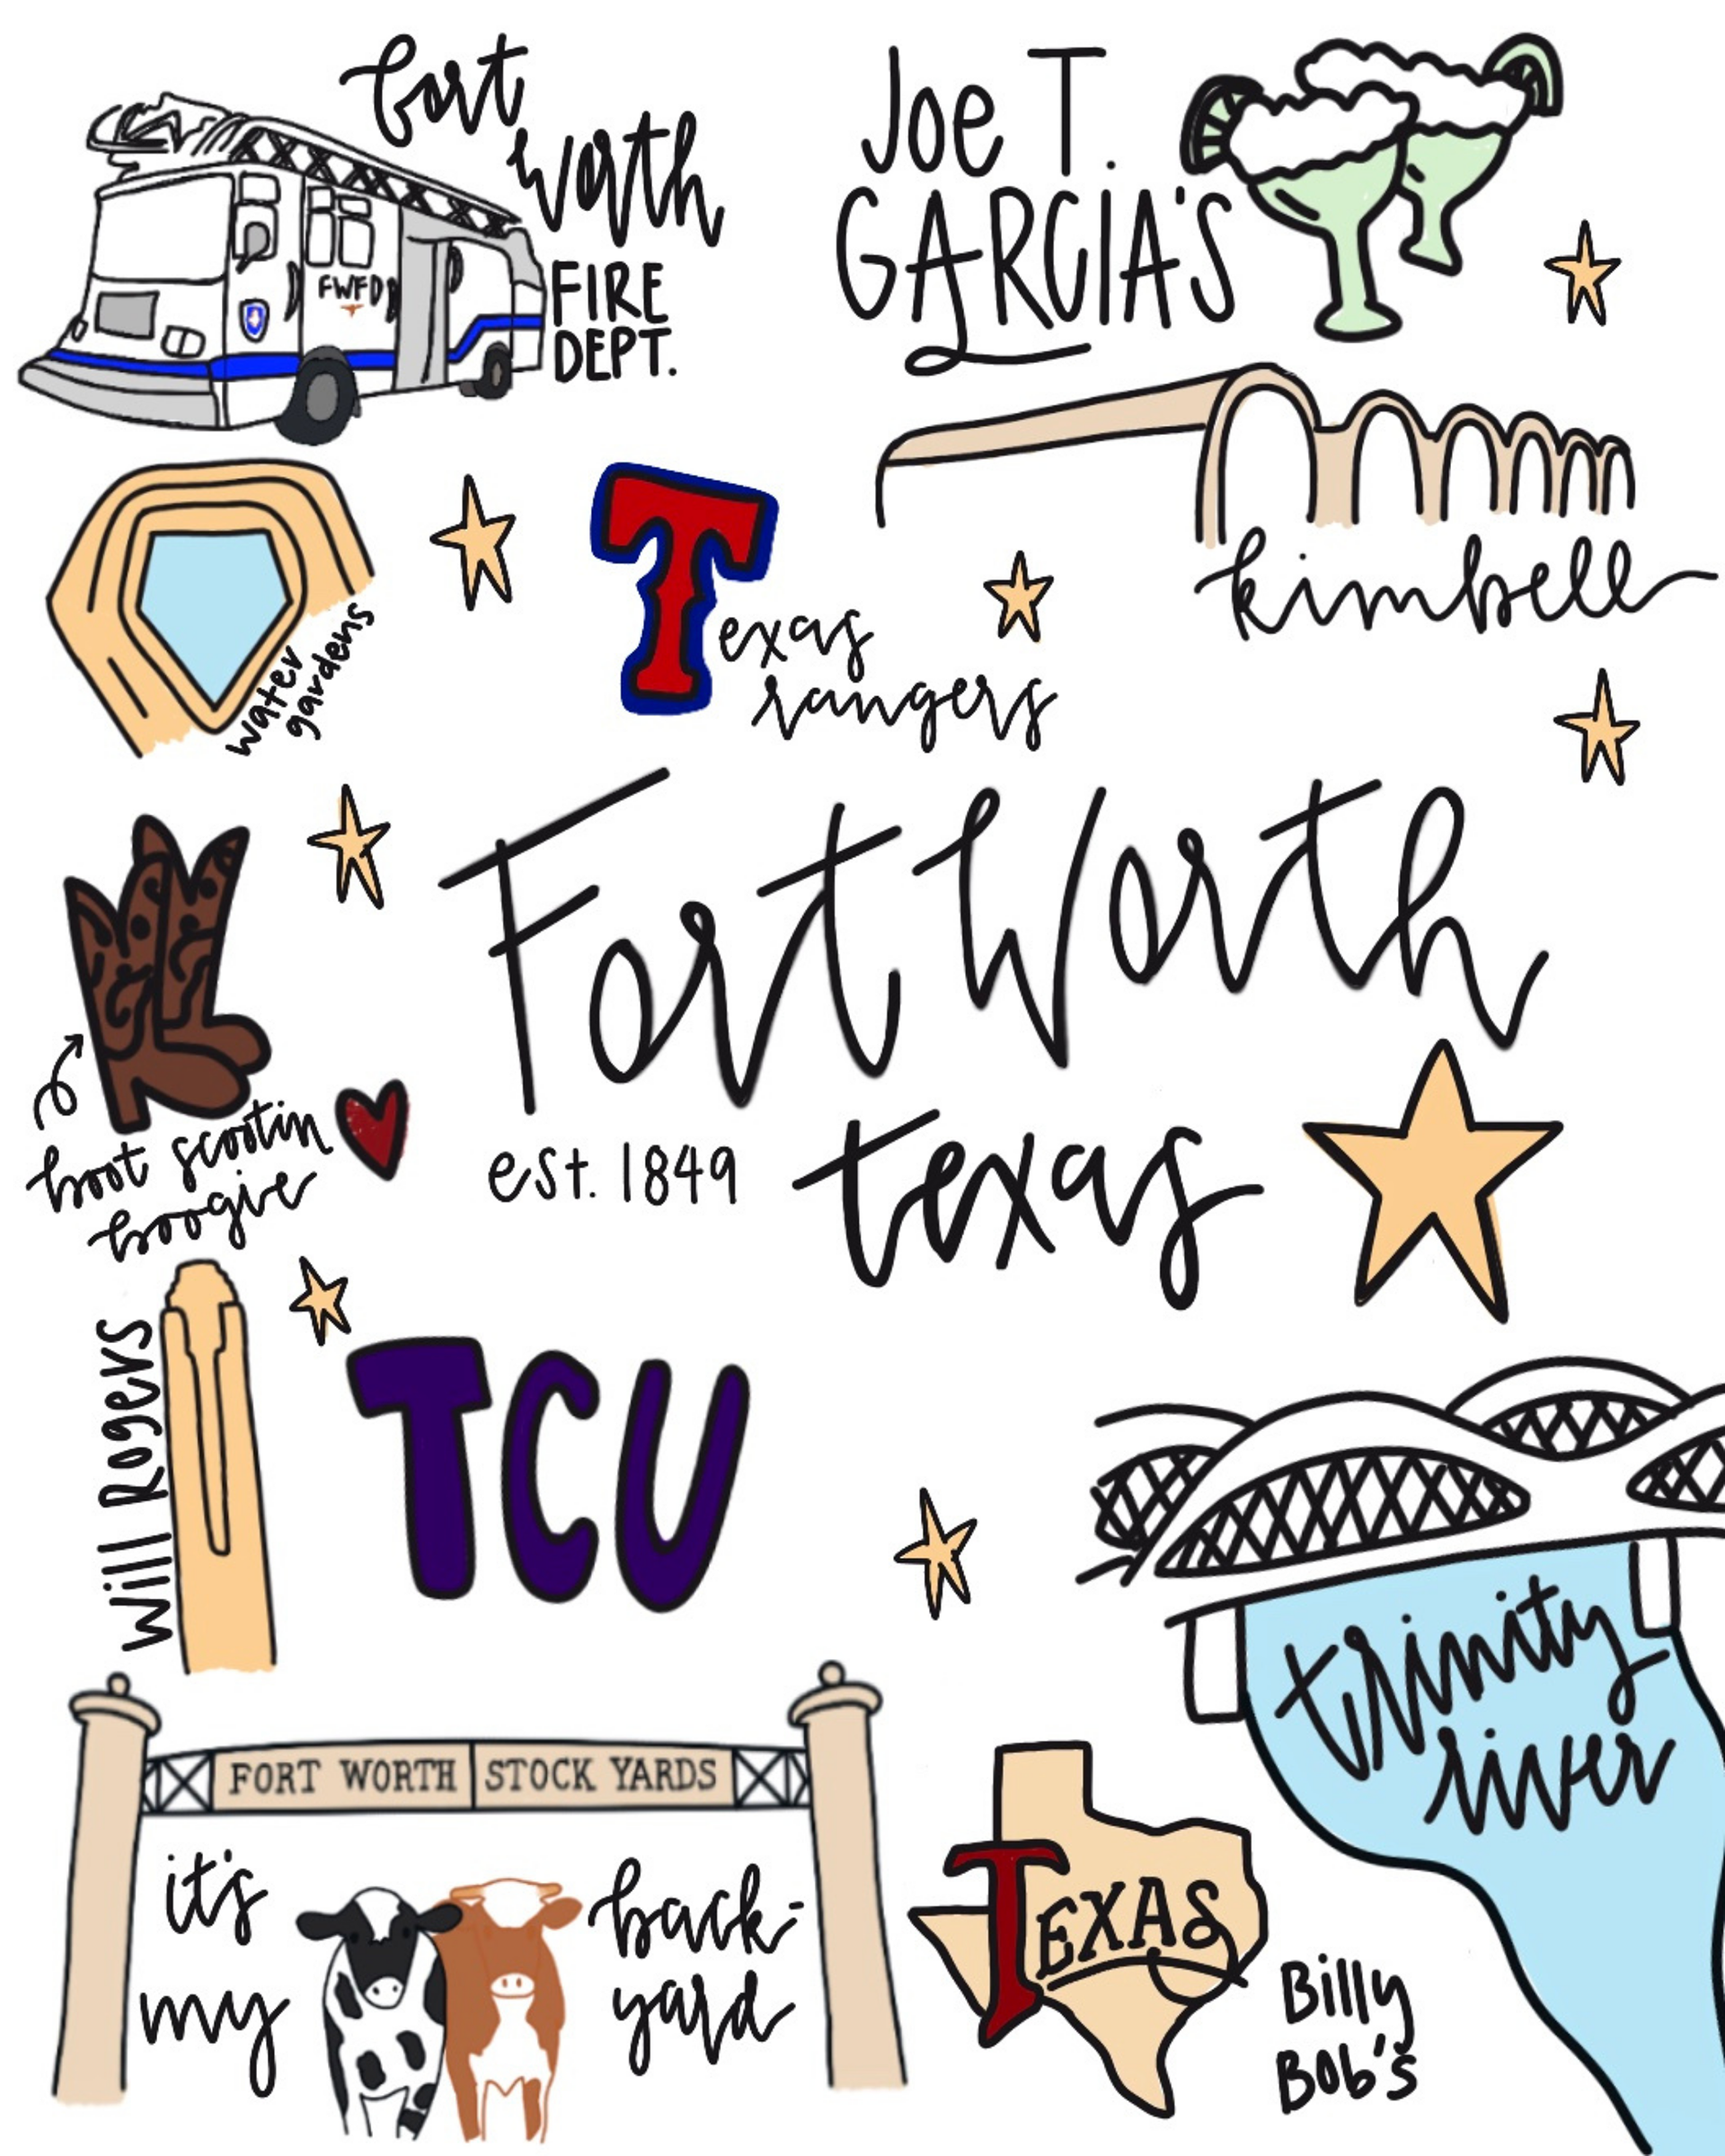 fort
worth
FIRE
DEPT.
FWFD
Joe T.
GARCIA'S
kimbell
water
gardens
Texas
rangers
Fort Worth
est. 1849
texas
boot scootin
boogie
Will Rogers
TCU
trinity
river
FORT WORTH STOCK YARDS
it's
my
back-
yard
TEXAS
Billy
Bob's